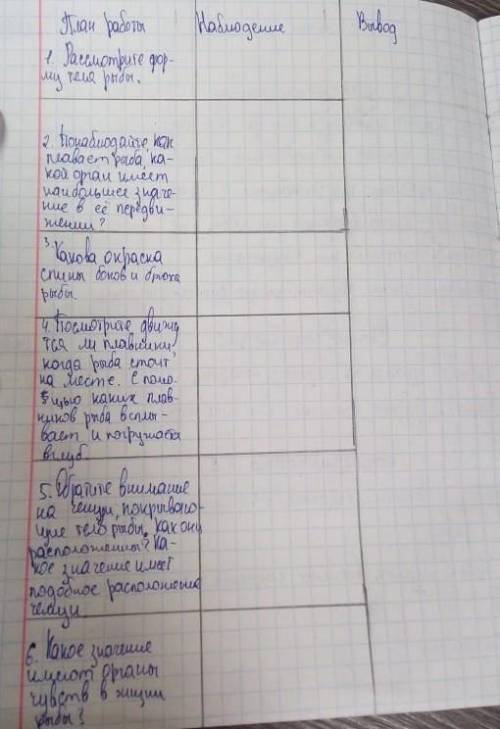 План работы
Наблюдение
Вывод
1. Рассмотрите фор-
му тела рыбы.
2. Понаблюдайте, как
плавает рыба, ка-
кой орган имеет
наибольшее значе-
ние в её передви-
жении?
3. Какова окраска
спины боков и брюха
рыбы.
4. Посмотрите движу
тся ли плавники,
когда рыба стоит
на месте. С помо-
щью каких плав-
ников рыба всплы-
вает и погружается
вглубь.
5. Обратите внимание
на чешуи, покрываю-
щие тело рыбы. Как они
расположенны? Ка-
кое значение имеет
подобное расположение
чешуи
6. Какое значение
имеют органы
чувств в жизни
рыбы?